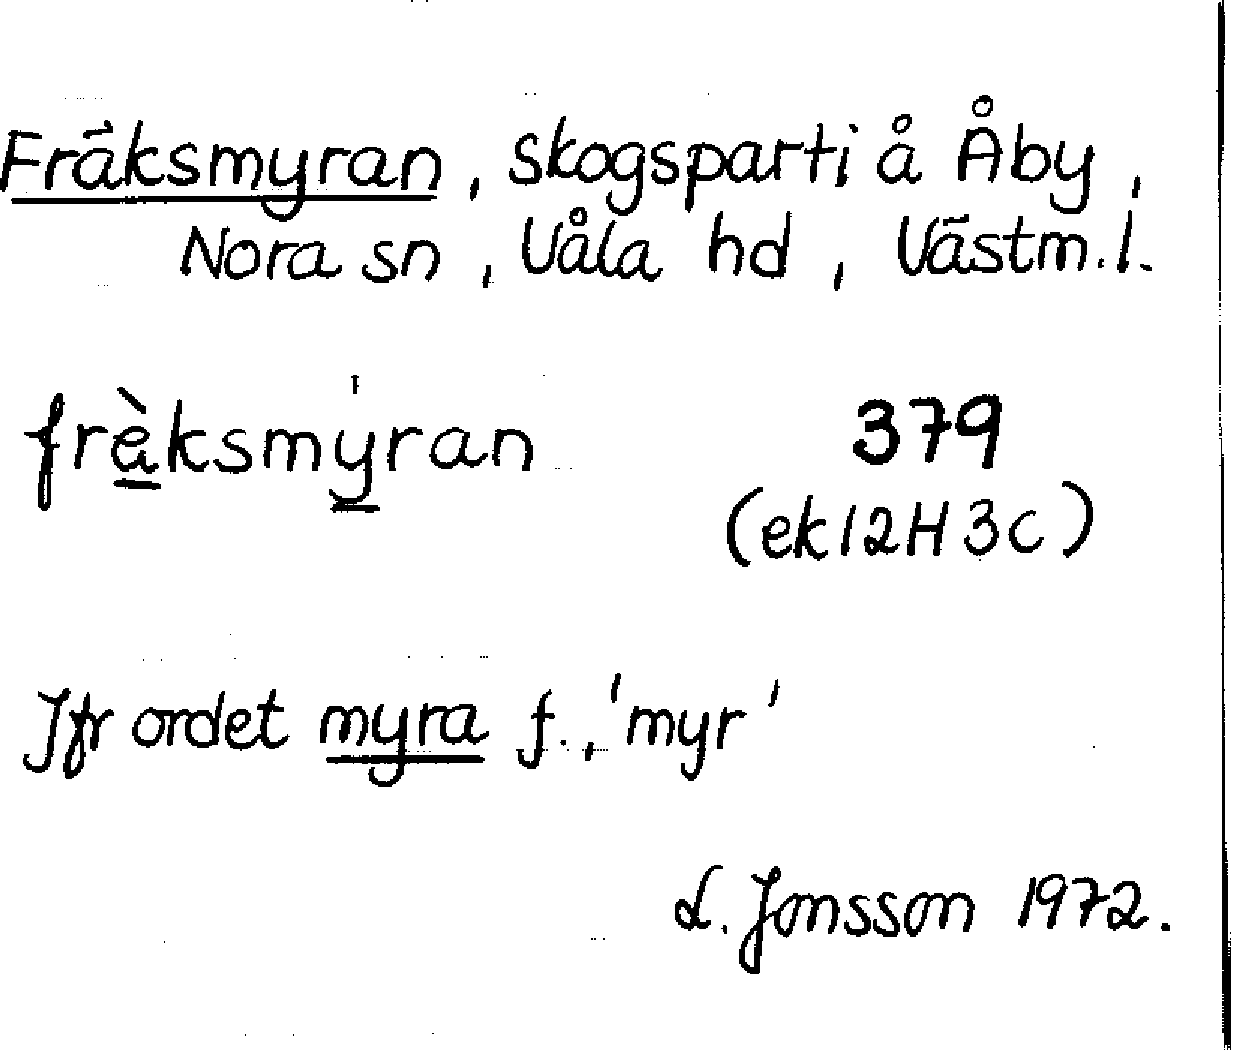 Fräksmyran, skogsparti å Åby,
Nora sn, Våla hd, Västm. l.
frèksmy̍ran 379
(ek 12H 3c)
Jfr ordet myra f., 'myr'
L. Jonsson 1972.